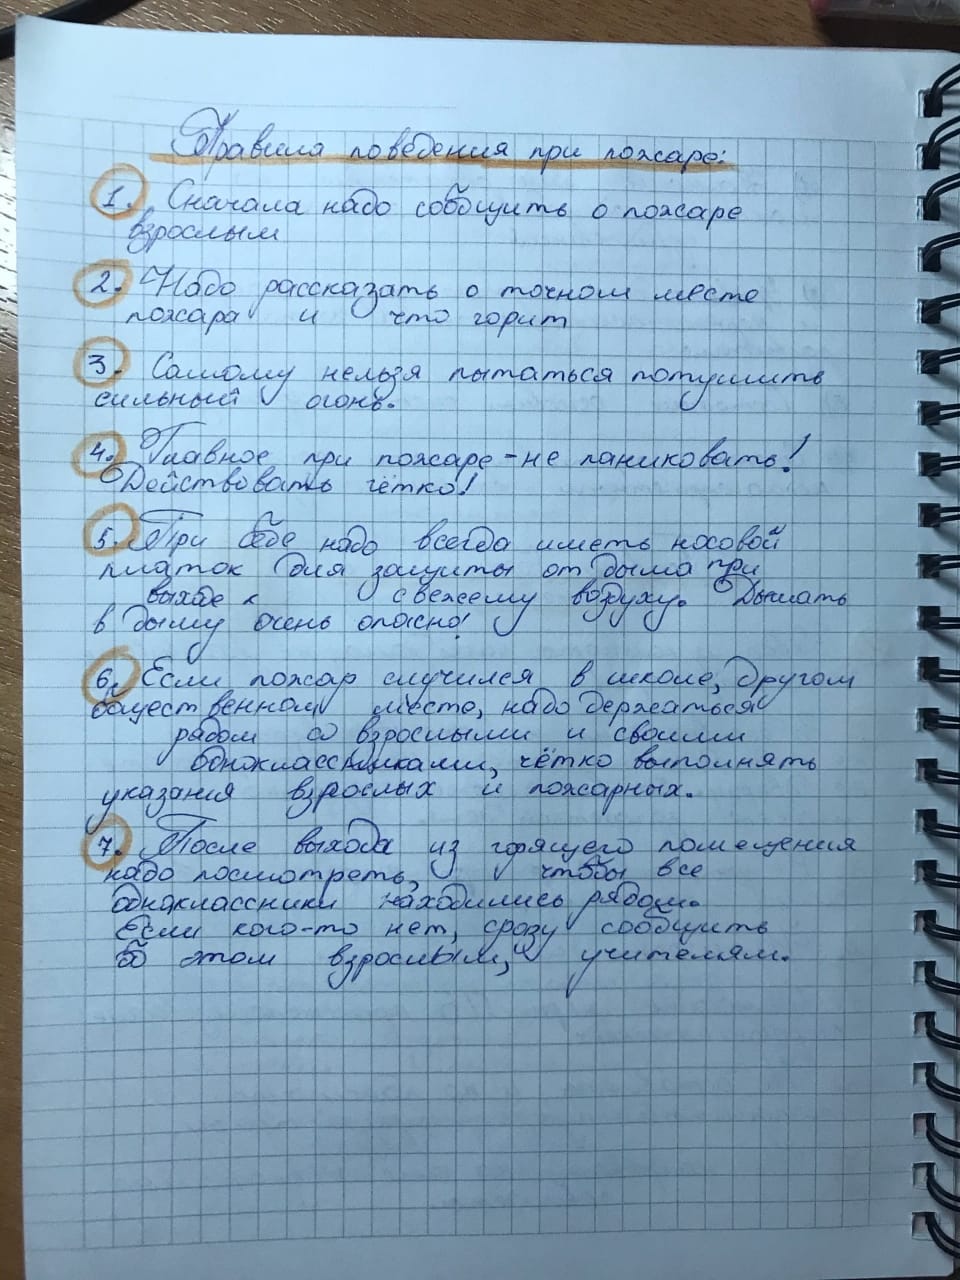 Правила поведения при пожаре:
1. Сначала надо сообщить о пожаре
взрослым
2. Надо рассказать о точном месте
пожара и что горит
3. Самому нельзя пытаться потушить
сильный огонь.
4. Главное при пожаре - не паниковать!
Действовать чётко!
5. При себе надо всегда иметь носовой
платок для защиты от дыма при
выходе к свежему воздуху. Дышать
в дыму очень опасно!
6. Если пожар случился в школе, другом
общественном месте, надо держаться
рядом со взрослыми и своими
одноклассниками, чётко выполнять
указания взрослых и пожарных.
7. После выхода из горящего помещения
надо посмотреть, чтобы все
одноклассники находились рядом.
Если кого-то нет, сразу сообщить
об этом взрослым, учителям.